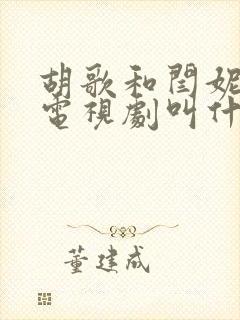 胡歌和閆妮
電視劇叫什
董建成